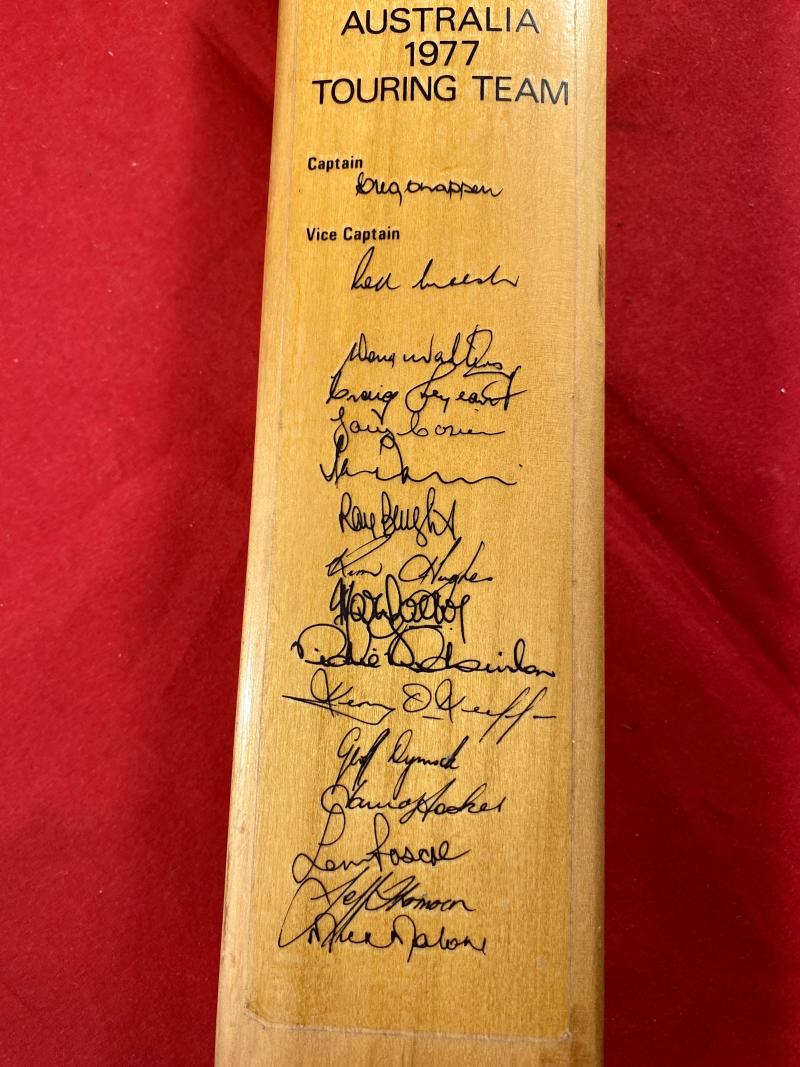 AUSTRALIA
1977
TOURING TEAM
Captain
Greg Chappell
Vice Captain
Rod Marsh
Doug Walters
Craig Serjeant
Gary Cosier
Ian Davis
Ray Bright
Kim Hughes
Richie Robinson
Kerry O'Keeffe
Geoff Dymock
David Hookes
Len Pascoe
Jeff Thomson
Mick Malone